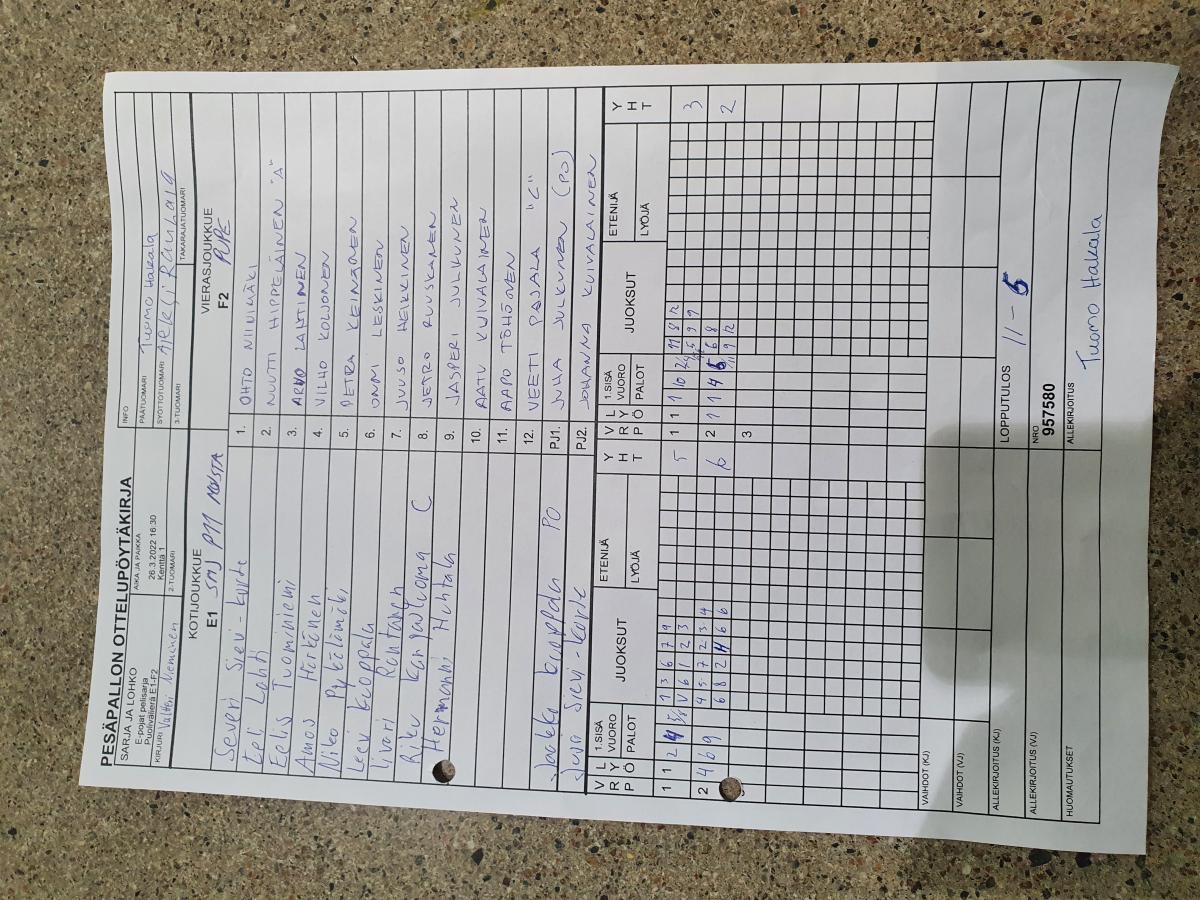 PESÄPALLON OTTELUPÖYTÄKIRJA
SARJA JA LOHKO
E-pojat pelisarja
Puolivälierä E1-F2
AIKA JA PAIKKA
26.3.2022 16:30
Kenttä 1
INFO
KIRJURI Valtteri Nieminen
2-TUOMARI
PÄÄTUOMARI Tuomo Hakala
SYÖTTÖTUOMARI Aleksi Rauhala
3-TUOMARI
TAKARAJATUOMARI
KOTIJOUKKUE
E1 SMJ PM MUSTA
VIERASJOUKKUE
F2 PUPE
Severi Sievi-Korte 1. OHTO NIINIMÄKI
Eeli Lahti 2. NUUTTI HIPPELÄINEN "A"
Eelis Tuominiemi 3. ARVO LAHTINEN
Amos Härkönen 4. VILHO KOLJONEN
Niko Pykälämäki 5. PETRA KEINONEN
Leevi Kuoppala 6. ONNI LESKINEN
Iivari Rantanen 7. JUUSO HEIKKINEN
Riku Kangasluoma C 8. JETRO RUUSKANEN
Hermanni Huhtala 9. JASPER JULKUNEN
10. AATU KUIVALAINEN
11. AAPO TÖHÖNEN
12. VEETI PAJALA "C"
Jaakko Kuoppala PO PJ1. JUHA JULKUNEN (PO)
Juha Sievi-Korte PJ2. JOHANNA KUIVALAINEN
V R P L Y Ö 1.SISÄ VUORO PALOT JUOKSUT ETENIJÄ LYÖJÄ Y H T
V R P L Y Ö 1.SISÄ VUORO PALOT JUOKSUT ETENIJÄ LYÖJÄ Y H T
1 1 2 4 1 3 6 7 9 5
V 6 1 2 3
2 4 6 9 4 5 7 2 3 4 6
6 8 2 11 6 6
1 1 1 10 11 8 12 3
5 9 9
2 1 1 4 6 6 8 2
11 9 12
3
VAIHDOT (KJ)
VAIHDOT (VJ)
ALLEKIRJOITUS (KJ)
LOPPUTULOS 11 - 5
ALLEKIRJOITUS (VJ)
NRO
957580
HUOMAUTUKSET
ALLEKIRJOITUS
Tuomo Hakala